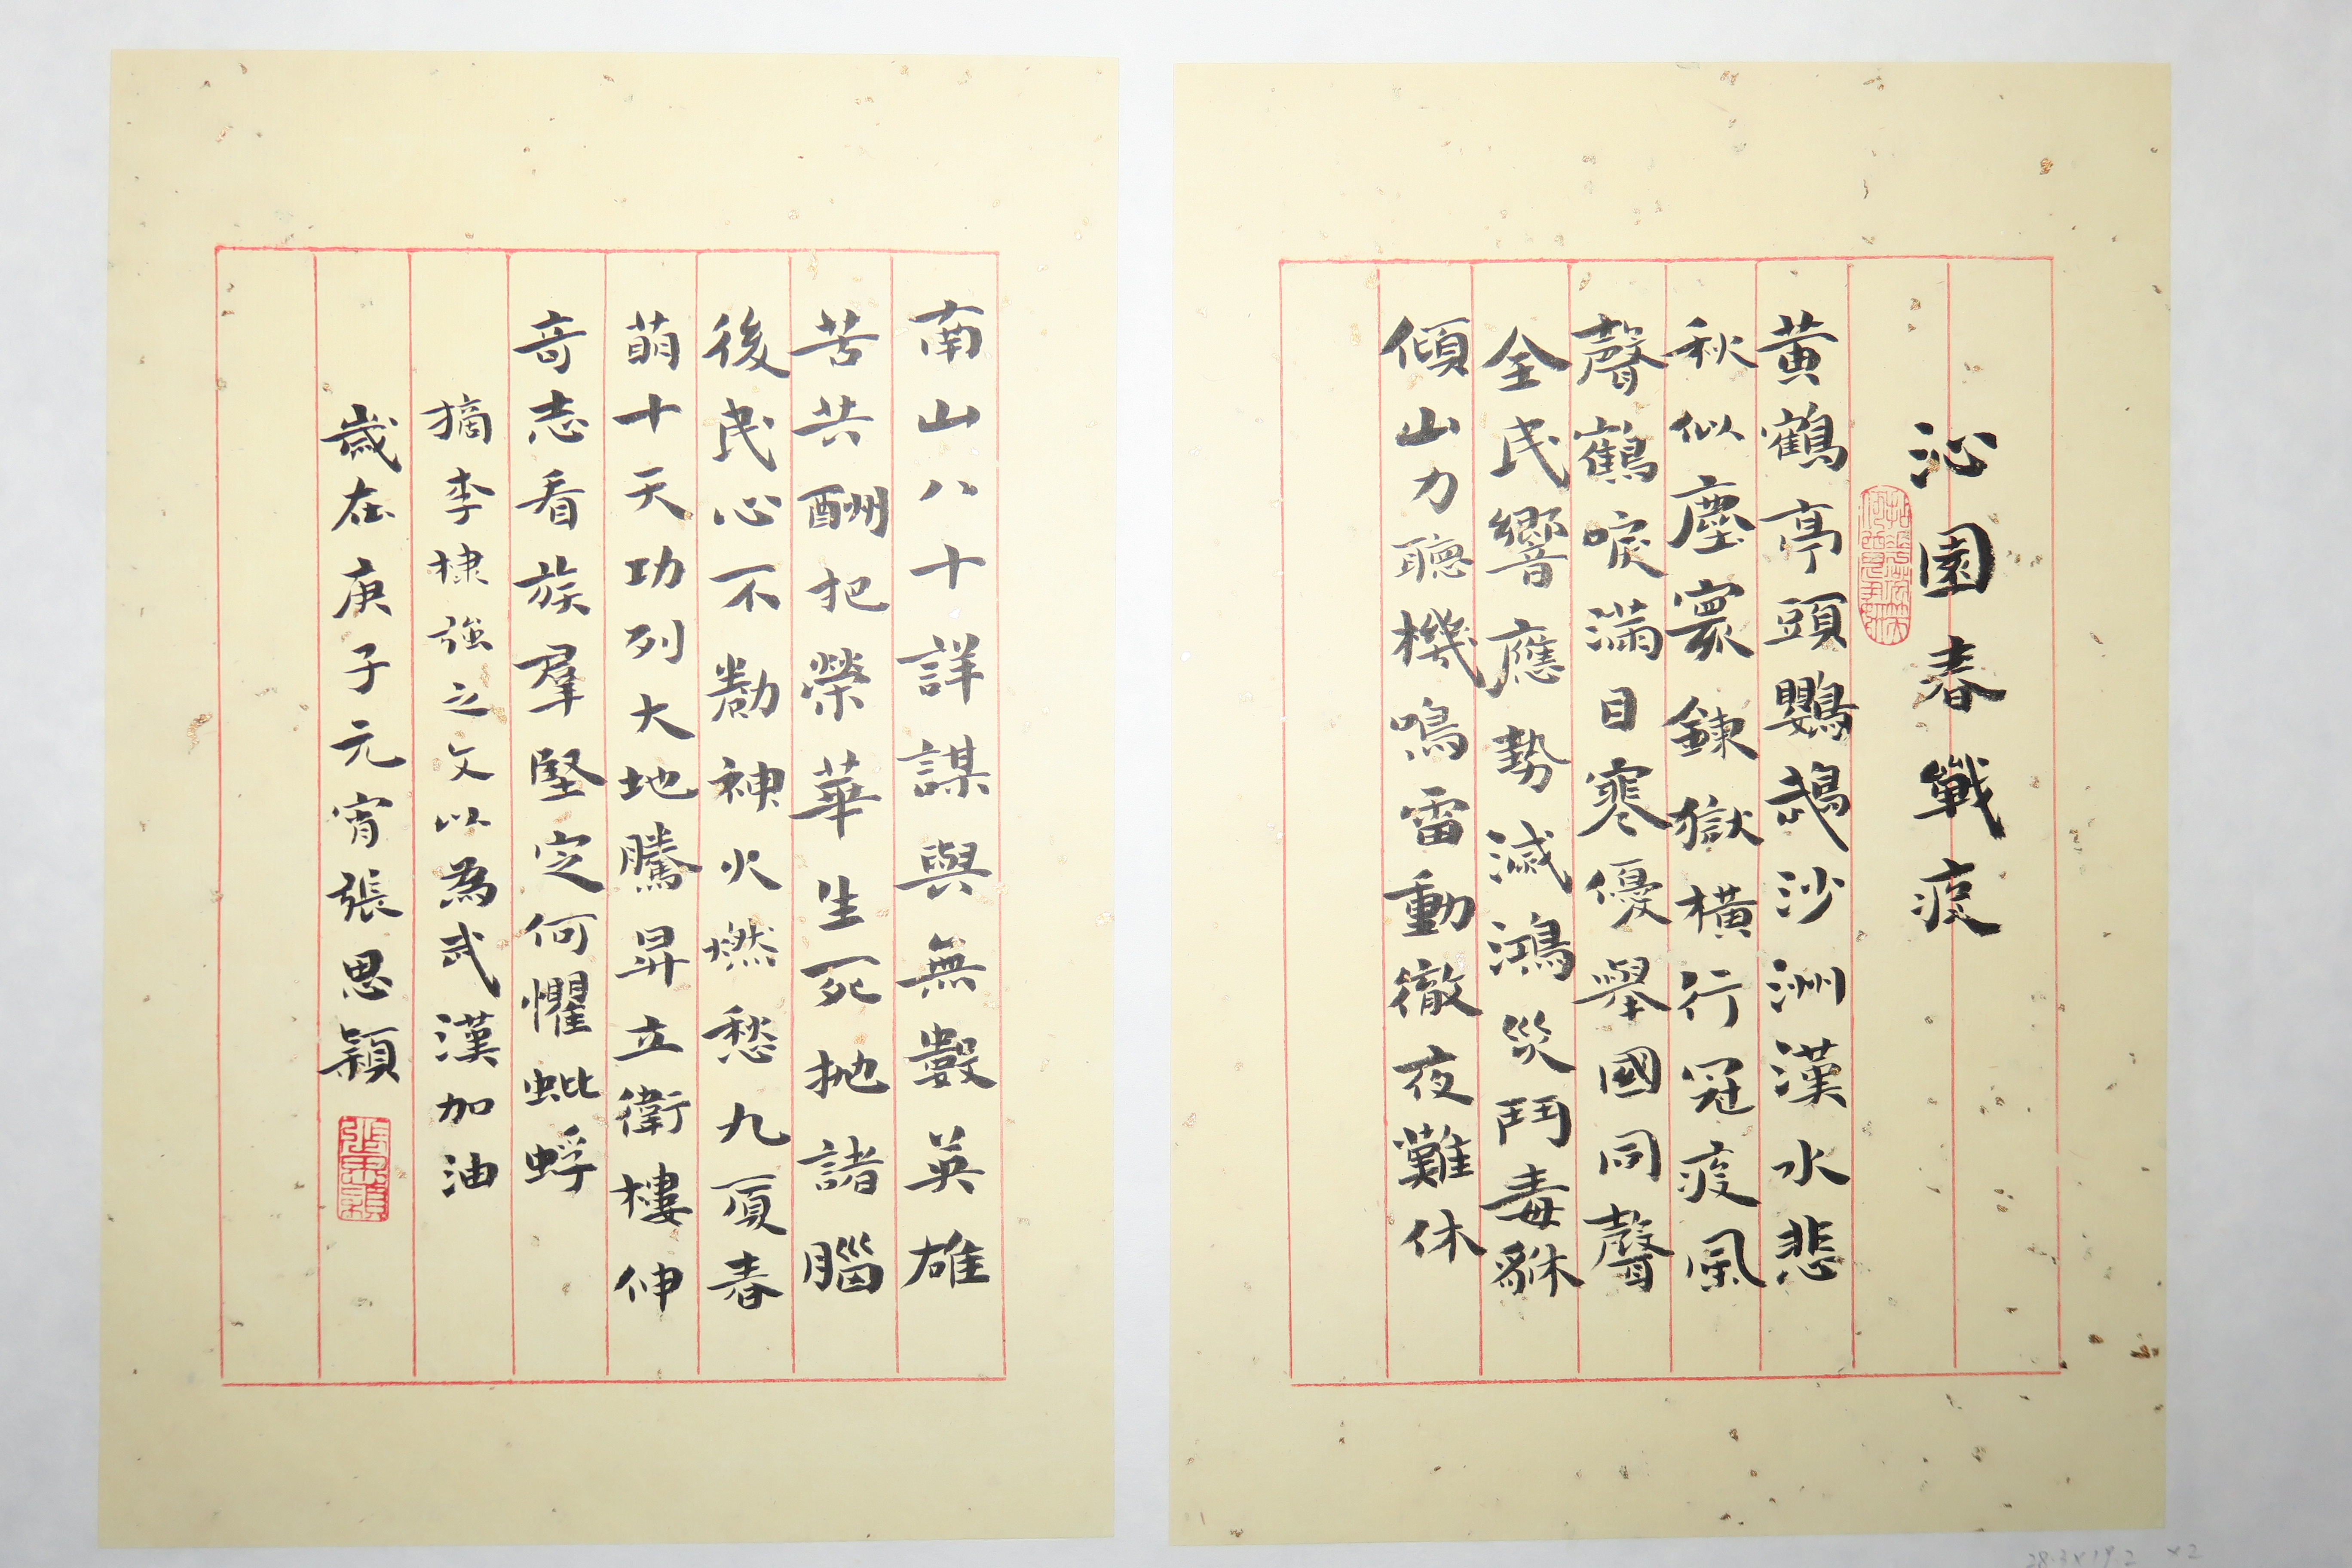 沁園春戰疫
黃鶴亭頭鸚鵡沙洲漢水悲
秋似塵寰鍊獄橫行冠疫風
聲鶴唳滿目寒優舉國同聲
全民響應勢滅鴻災鬥毒貅
傾山力聽機鳴雷動徹夜難休
南山八十詳謀與無數英雄
苦共酬把榮華生死拋諸腦
後民心不勸神火燃愁九頭春
萌十天功列大地騰昇立衛樓伸
奇志看族羣堅定何懼蚍蜉
摘李棣強之文以為武漢加油
歲在庚子元宵張思穎
張思穎
28.3×19.2 ×2